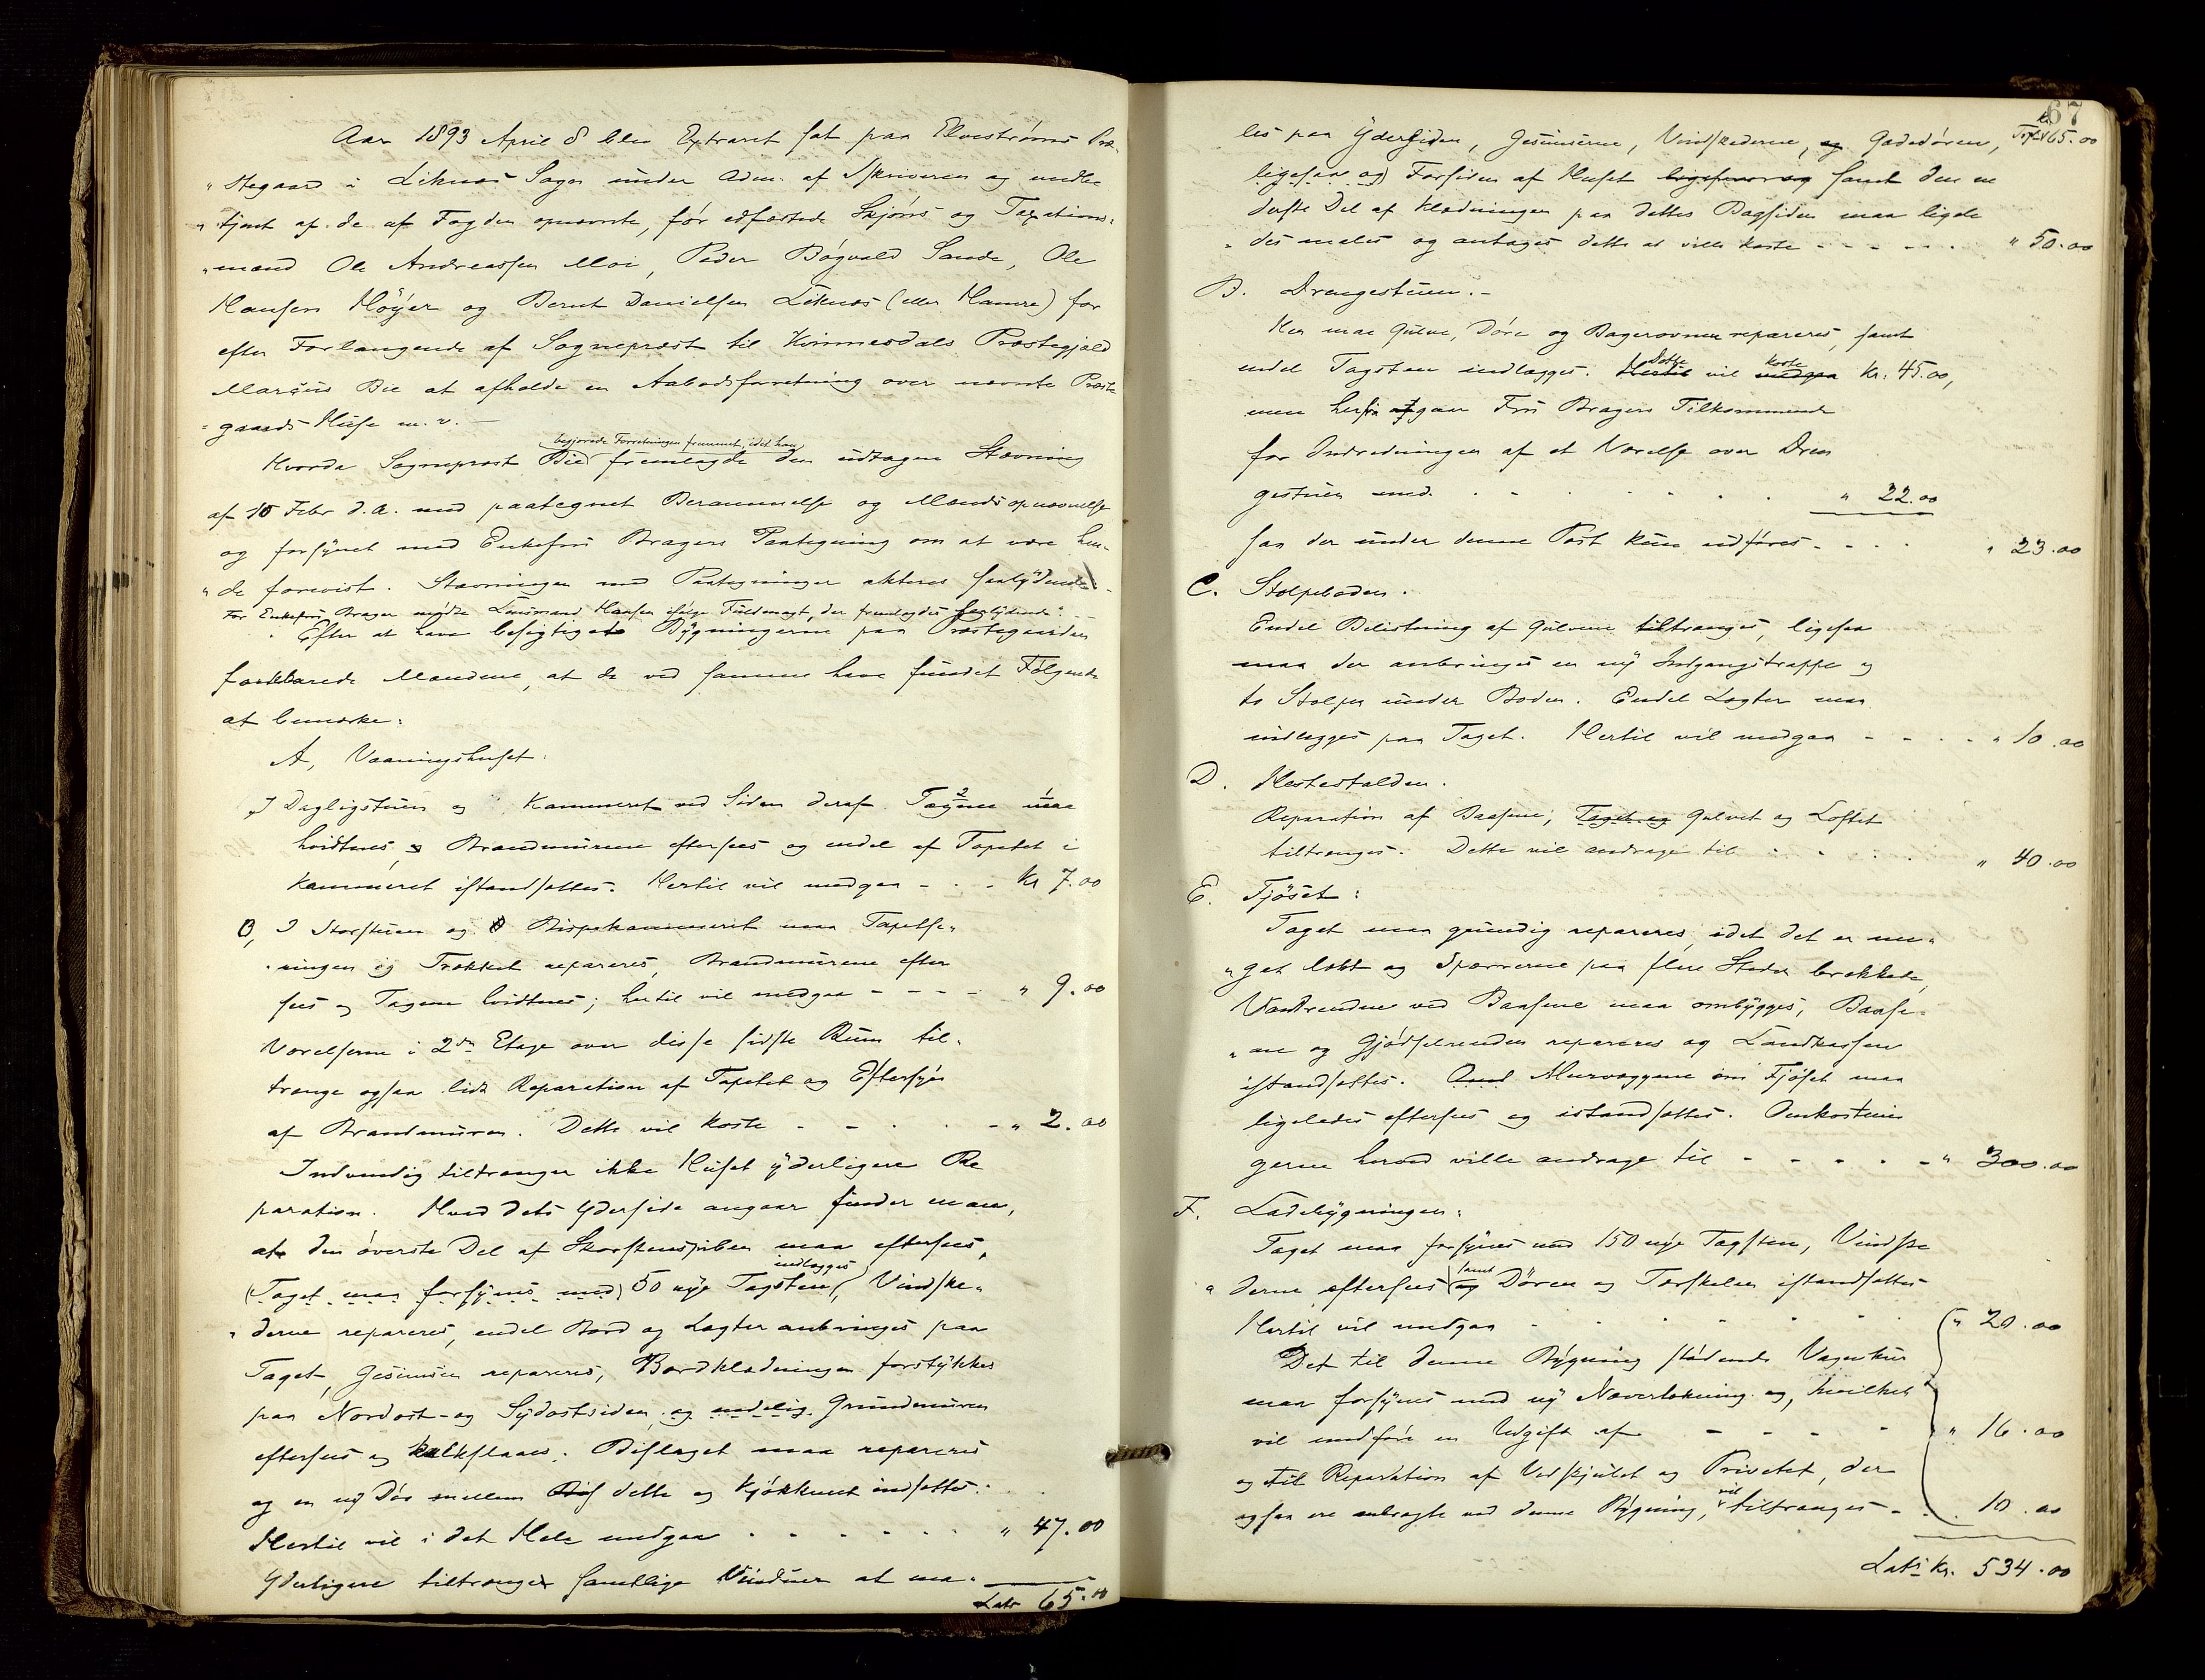 Aar 1893 April 8 blev Extraret sat paa Elvestrøms Præ-
"stegaard i Liknes Sogn under Adm. af Skriveren og medbe
"tjent af de af Fogden opnævnte, før edfæstede Skjøns og Taxations-
"mænd Ole Andreassen Moi, Peder Bøgvald Sande, Ole
Hansen Høyer og Bernt Danielsen Liknes (eller Hamre) for
efter Forlangende af Sognepræst til Kvinnesdals Præstegjæld
Marcus Bie at afholde en Aabodsforretning over nævnte Præste
"gaards Huse m. v. —
begjærede Forretningen fremmet, idet han
Hvorda Sognepræst Bie fremlagde den udtagne Stævning
af 10 Febr d. A. med paategnet Berammelse og Mændsopnævnelse
og forsynet med Enkefru Bragers Paategning om at være hen-
"de forevist. Stævningen med Paategninger akteres saalydende
For Enkefru Brager mødte Lensmand Hansen ifølge Fuldmagt, der fremlagdes saalydende:
Efter at have besigtiget Bygningerne paa Præstegaarden
forklarede Mændene, at de ved samme have fundet Følgende
at bemærke:
A, Vaaningshuset:
I Dagligstuen og Kammeret ved Siden deraf Tagene maa
hvidtnes, Brandmurene eftersees og endel af Tapetet i
Kammeret istandsættes. Hertil vil medgaa - - - Kr 7.00
B, I Storstuen og Bispekammeret maa Tapetse-
"ringen og Trækket repareres, Brandmurene efter
sees og Tagene hvidtnes; hertil vil medgaa - - - - " 9.00
Værelserne i 2den Etage over disse sidste Rum til-
trænge ogsaa lidt Reparation af Tapetet og Eftersyn
af Brandmuren. Dette vil koste - - - - - " 2.00
Indvendig tiltrænger ikke Huset yderligere Re
paration. Hvad dets Yderside angaar finder man,
at den øverste Del af Skorstenspiben maa eftersees,
indlægges
(Taget maa forsynes med) 50 nye Tagsten, Vindske-
"derne repareres, endel Bord og Lægter anbringes paa
Taget, Gesimsen repareres, Bordklædningen forstykkes
paa Nordost- og Sydostsiden og endelig Grundmuren
eftersees og kalkslaaes. Bislaget maa repareres
og en ny Dør mellem dette og Kjøkkenet indsættes.
Hertil vil i det Hele medgaa - - - - - - " 47.00
Yderligere tiltrænger samtlige Vinduer at ma-
Latr 65.00
67
Transp. 65.00
les paa Ydersiden, Gesimserne, Vindskederne, og Gadedøren,
ligesaa og Forsiden af Huset ligesaa og samt den ne
derste Del af Klædningen paa dettes Bagside maa ligele
"des males og antages dette at ville koste - - - - - - " 50.00
B. Drengestuen. -
Her maa Gulve, Døre og Bagerovnen repareres, samt
Dette koste
endel Tagsten indlægges. Hertil vil medgaa Kr. 45.00,
men herfra afgaar Fru Bragers Tilkommende
for Indredningen af et Værelse over Dren
gestuen med. - - - - - - " 22.00
saa der under denne Post kun udføres - - - - " 23.00
C. Stolpeboden.
Endel Belistning af Gulvene tiltrænges, ligesaa
maa der anbringes en ny Indgangstrappe og
to Stolper under Boden. Endel Lægter maa
indlægges paa Taget. Hertil vil medgaa - - - - " 10.00
D. Hestestalden.
Reparation af Baasene, Taget og Gulvet og Loftet
tiltrænges. Dette vil andrage til - - - - - " 40.00
E. Fjøset:
Taget maa grundig repareres, idet det er me-
"get læk og Sperrerne paa flere Steder brækkede,
Vandrenden ved Baasene maa ombygges, Baase-
"ne og Gjødselrenden repareres og Landkassen
istandsættes. Murvæggene om Fjøset maa
ligeledes eftersees og istandsættes. Omkostnin
gerne herved ville andrage til - - - - - " 300.00
F. Ladebygningen:
Taget maa forsynes med 150 nye Tagsten, Vindske
samt
"derne eftersees og Døren og Tærskelen istandsættes
Hertil vil medgaa - - - - - - " 20.00
Det til denne Bygning stødende Vognskur
maa forsynes med ny Nævertækning og, hvilket
vil medføre en Udgift af - - - - " 16.00
og til Reparation af Vedskjulet og Privetet, der
vil
ogsaa ere anbragte ved denne Bygning, tiltrænges - - 10.00
Lats Kr. 534.00